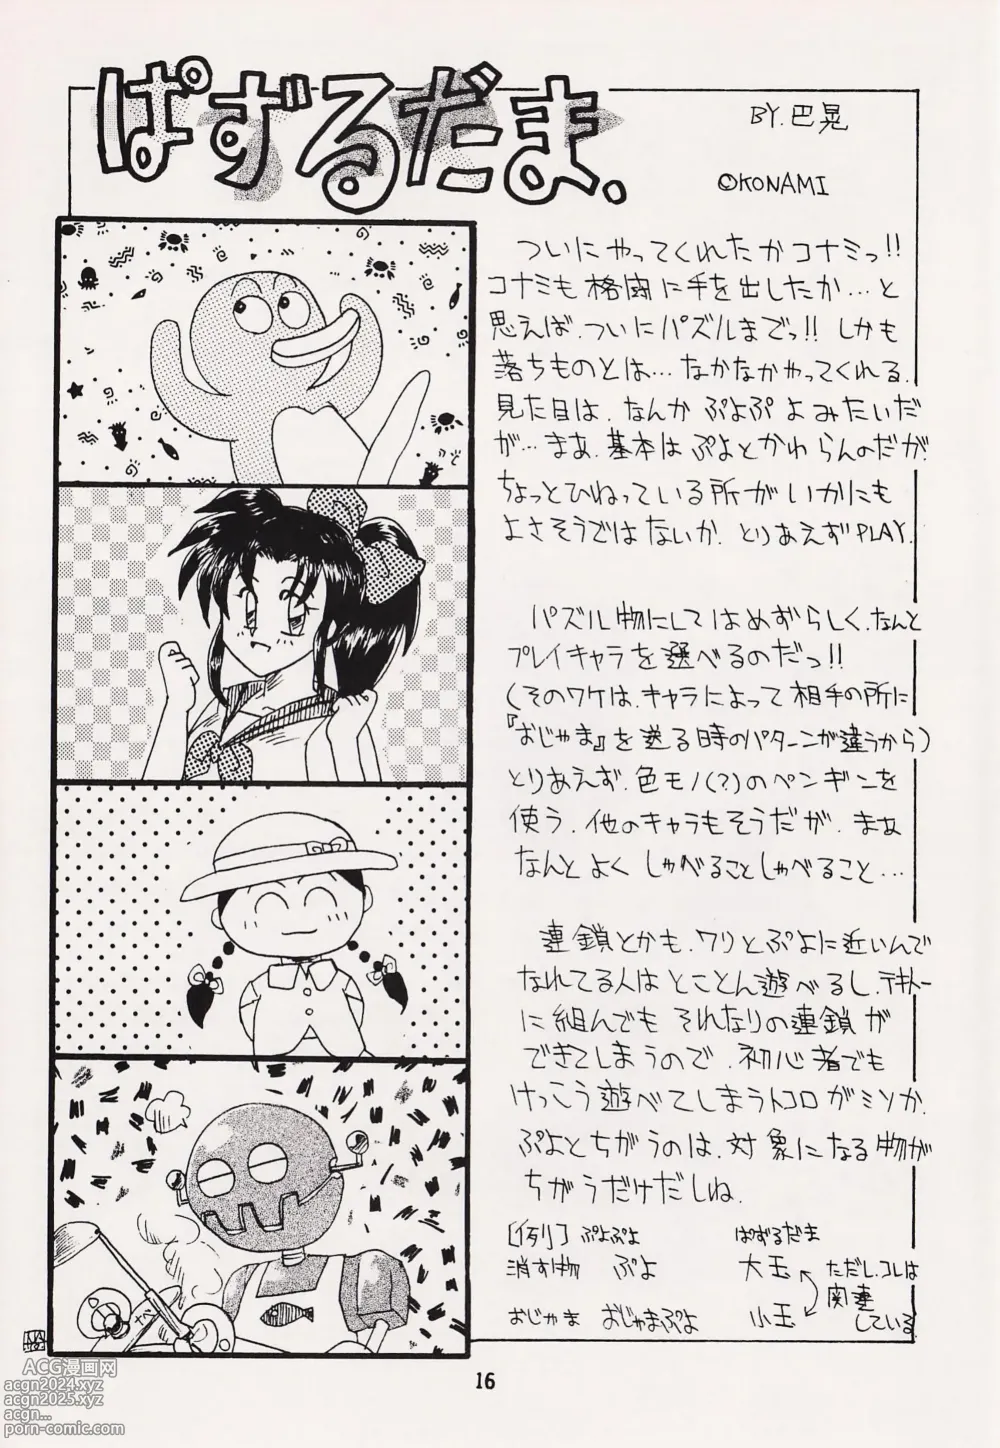 ぱずるだま.
BY.巴晃
©KONAMI
ついにやってくれたかコナミっ!!
コナミも格闘に手を出したか…と
思えば、ついにパズルまでっ!! しかも
落ちものとは…なかなかやってくれる.
見た目は、なんか ぷよぷよみたいだ
が…まあ.基本はぷよとかわらんのだが.
ちょっとひねっている所がいかにも
よさそうではないか. とりあえずPLAY.
パズル物にしてはめずらしく、なんと
プレイキャラを選べるのだっ!!
(そのワケは、キャラによって相手の所に
『おじゃま』を送る時のパターンが違うから)
とりあえず.色モノ(?)のペンギンを
使う. 他のキャラもそうだが、まあ
なんとよく しゃべることしゃべること…
連鎖とかも、ワリとぷよに近いんで
なれてる人はとことん遊べるし、テキトー
に組んでも それなりの連鎖が
できてしまうので、初心者でも
けっこう遊べてしまうトコロがミソか.
ぷよとちがうのは、対象になる物が
ちがうだけだしね.
[例] ぷよぷよ ぱずるだま
消す物 ぷよ 大玉 ただし、コレは
関連
おじゃま おじゃまぷよ 小玉 している
16
ACG漫画网
acgn2024.xyz
acgn2025.xyz
acgn...
porn-comic.com